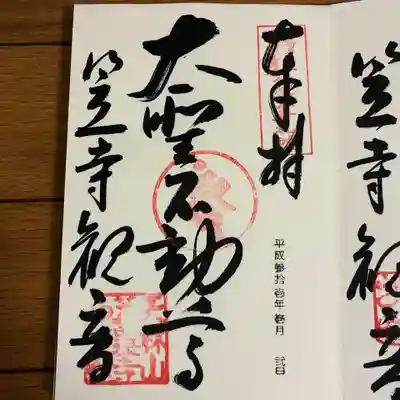 奉拝
平成参拾壱年壱月 弐日
大聖不動尊
笠寺観音
笠寺観音